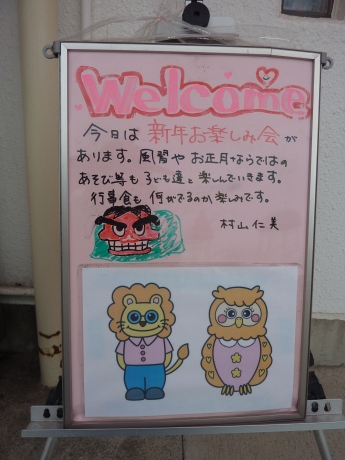 Welcome
今日は 新年お楽しみ会が
あります。風習や お正月ならではの
あそび等も 子ども達と 楽しんでいきます。
行事食も 何がでるのか 楽しみです。
村山仁美